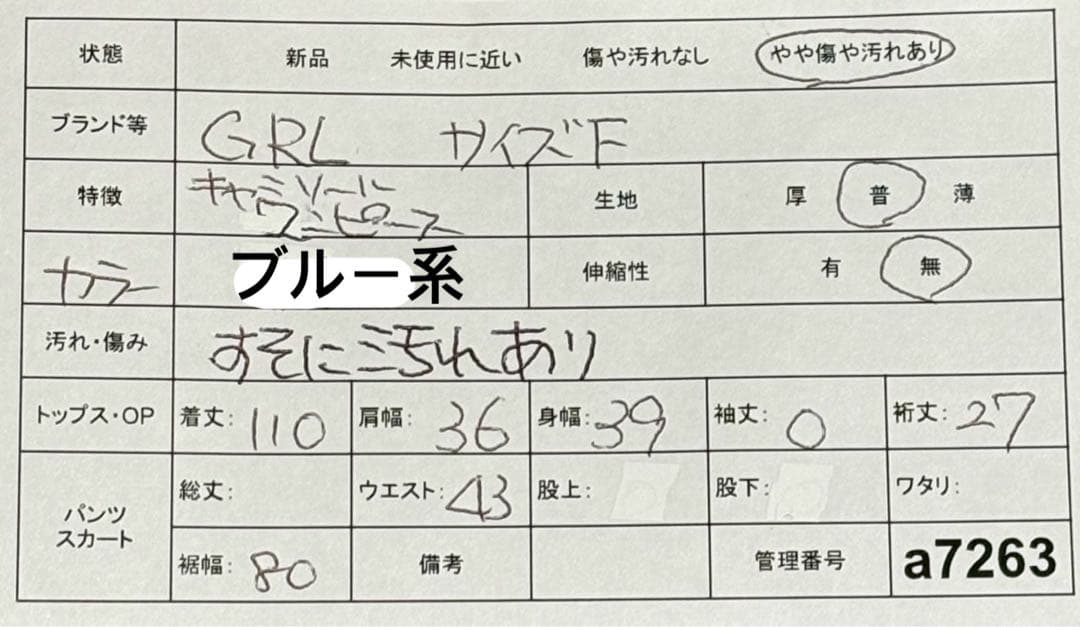 状態 新品 未使用に近い 傷や汚れなし やや傷や汚れあり
ブランド等 GRL サイズF
特徴 キャミソールワンピース 生地 厚 普 薄
カラー ブルー系 伸縮性 有 無
汚れ・傷み すそに汚れあり
トップス・OP 着丈: 110 肩幅: 36 身幅: 39 袖丈: 0 裄丈: 27
パンツ スカート 総丈: ウエスト: 43 股上: 股下: ワタリ:
裾幅: 80 備考 管理番号 a7263